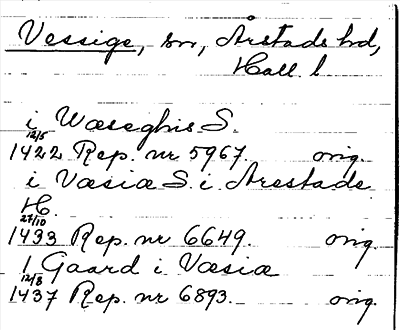 Vessige, sn, Årstads hd,
Hall. l
i Wæseghis S.
12/5
1422 Rep. nr 5967. orig.
i Væsiæ S. i Arestade
H.
27/10
1433 Rep. nr 6649. orig.
1 Gaard i Væsiæ
12/8
1437 Rep. nr 6893. orig.